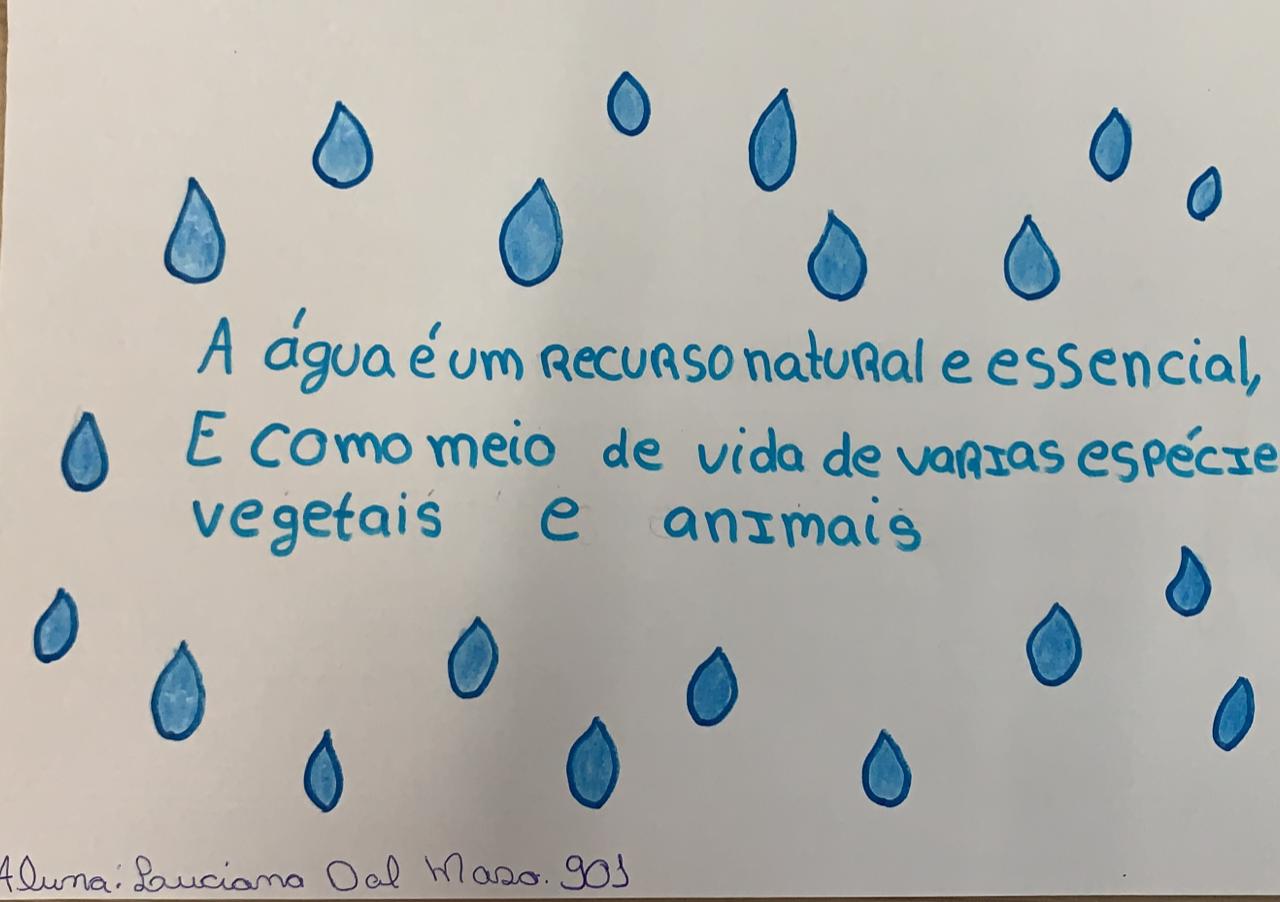 A água é um RECURSO natuRal e essencial,
E como meio de vida de vaRIas espécIe
vegetais e anImais
Aluna: Lauciana Dal Maso. 901